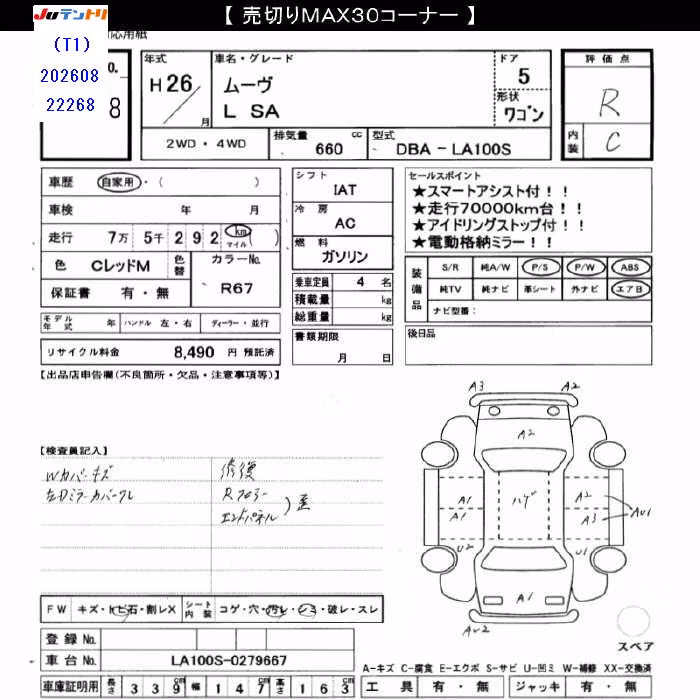 【 売切りMAX30コーナー 】
JUテントリ
応用紙
(T1)
202608
22268
o.
8
年式
H 26
月
車名・グレード
ムーヴ
L SA
ドア
5
形状
ワゴン
評価点
R
内装
C
2WD・4WD
排気量
cc
660
型式
DBA－LA100S
車歴
自家用・( )
車検
年 月
走行
7万 5千 2 9 2 km マイル ( )
色
CレッドM
色替
カラーNo.
R67
保証書 有・無
シフト
IAT
冷房
AC
燃料
ガソリン
乗車定員 4 名
積載量 kg
総重量 kg
セールスポイント
★スマートアシスト付！！
★走行70000km台！！
★アイドリングストップ付！！
★電動格納ミラー！！
装備品
S/R 純A/W P/S P/W ABS
純TV 純ナビ 革シート 外ナビ エアB
ナビ型番：
モデル年式 年 ハンドル 左・右 ディーラー・並行
リサイクル料金 8,490 円 預託済
書類期限
月 日
後日品
【出品店申告欄(不良箇所・欠品・注意事項等)】
【検査員記入】
Wカバーキズ
左Dミラーカバークレ
修復
Rフロアー
エンドパネル
)歪
A3
A2
A2
A1
A1
ハゲ
A2
A3
AU1
U2
U1
A1
AU2
スペア
FW キズ・トビ石・割レX
シート内装 コゲ・穴・汚レ・シミ・破レ・スレ
登録No.
車台No. LA100S-0279667
A-キズ C-腐食 E-エクボ S-サビ U-凹ミ W-補修 XX-交換済
車庫証明用 長さ 3 3 9 cm 幅 1 4 7 cm 高さ 1 6 3 cm
工具 有・無 ジャッキ 有・無